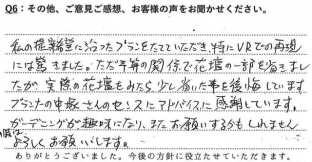 Q6：その他、ご意見ご感想、お客様の声をお聞かせください。
私の提案に沿ったプランをたてていただき、特にVRでの再現
には驚きました。ただ予算の関係で花壇の一部を省きまし
たが、実際の花壇をみたら、少し省いた事を後悔しています。
プランナーの中板さんのセンスにアドバイスに感謝しています。
ガーデニングが趣味になり、またお願いするかもしれません
よろしくお願いします。
ありがとうございました。今後の方針に役立たせていただきます。